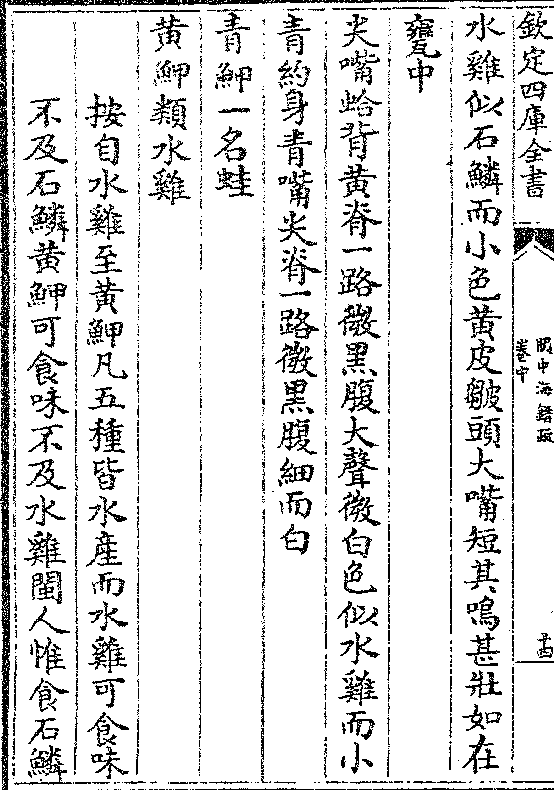 欽定四庫全書
閩中海錯疏
卷中
十四
水雞似石鱗而小色黄皮皺頭大嘴短其鳴甚壯如在
甕中
尖嘴蛤背黄脊一路微黒腹大聲微白色似水雞而小
青約身青嘴尖脊一路微黒腹細而白
青䱟一名蛙
黄䱟類水雞
按自水雞至黄䱟凡五種皆水産而水雞可食味
不及石鱗黄䱟可食味不及水雞閩人惟食石鱗